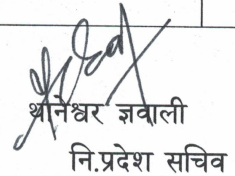 थानेश्वर ज्ञवाली
नि.प्रदेश सचिव